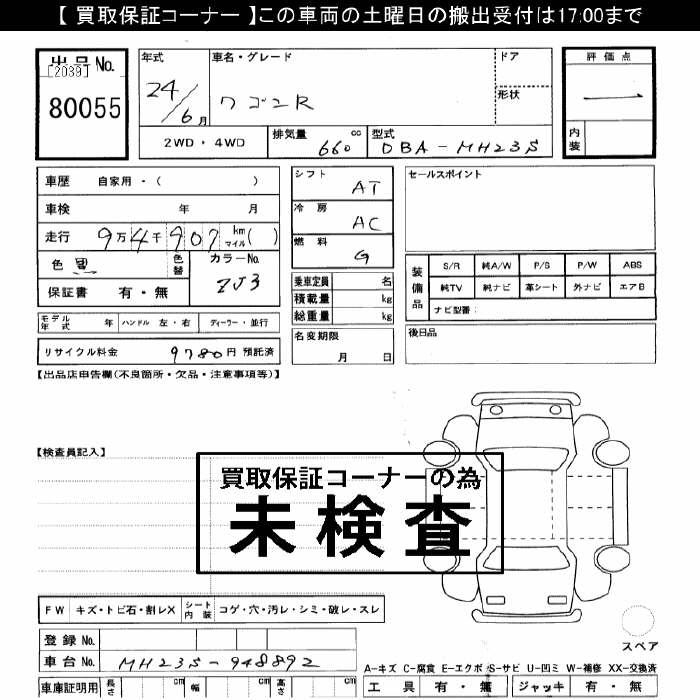 【 買取保証コーナー 】この車両の土曜日の搬出受付は17:00まで
出品No.
[2039]
80055
年式
24/6月
車名・グレード
ワゴンR
ドア
形状
2WD・4WD
排気量 660 cc
型式 DBA-MH23S
評価点
内装
車歴 自家用・( )
車検 年 月
走行 9万4千907 km マイル( )
色 黒 色替
カラーNo. ZJ3
保証書 有・無
シフト AT
冷房 AC
燃料 G
乗車定員 名
積載量 kg
総重量 kg
名変期限 月 日
セールスポイント
装備品
S/R 純A/W P/S P/W ABS
純TV 純ナビ 革シート 外ナビ エアB
ナビ型番:
後日品
モデル年式 年 ハンドル 左・右 ディーラー・並行
リサイクル料金 9780円 預託済
【出品店申告欄(不良箇所・欠品・注意事項等)】
【検査員記入】
買取保証コーナーの為
未検査
FW キズ・トビ石・割レX シート内装 コゲ・穴・汚レ・シミ・破レ・スレ
登録No.
車台No. MH23S-948892
車庫証明用 長さ cm 幅 cm 高さ cm
スペア
A-キズ C-腐食 E-エクボ S-サビ U-凹ミ W-補修 XX-交換済
工具 有・無 ジャッキ 有・無